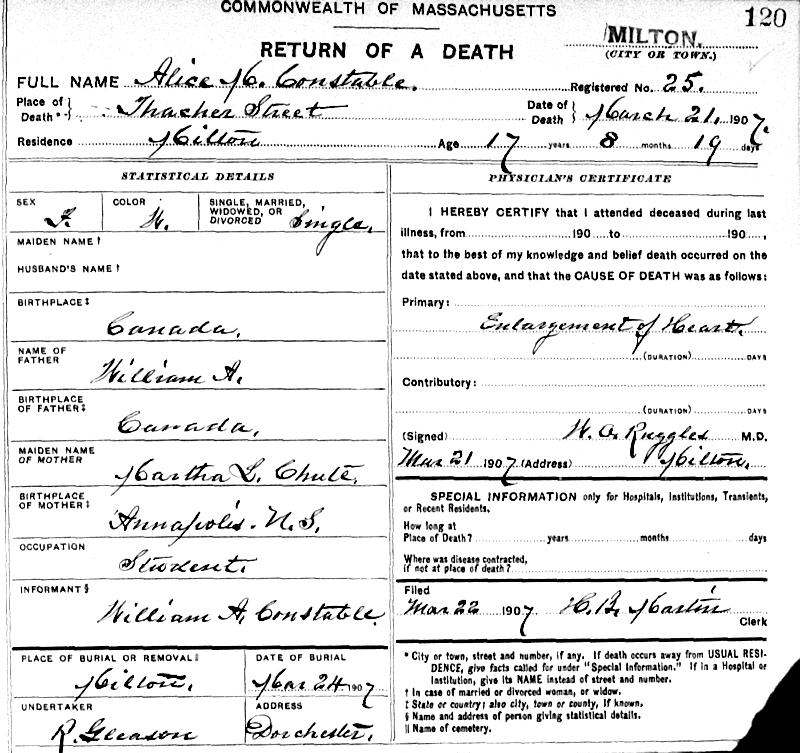 COMMONWEALTH OF MASSACHUSETTS
120
RETURN OF A DEATH
MILTON.
(CITY OR TOWN.)
FULL NAME Alice M. Constable. Registered No. 25.
Place of Death * Thacher Street Date of Death March 21, 1907.
Residence Milton Age 17 years 8 months 19 days
STATISTICAL DETAILS
SEX F. COLOR W. SINGLE, MARRIED, WIDOWED, OR DIVORCED Single.
MAIDEN NAME †
HUSBAND'S NAME †
BIRTHPLACE ‡
Canada.
NAME OF FATHER
William A.
BIRTHPLACE OF FATHER ‡
Canada.
MAIDEN NAME OF MOTHER
Martha L. Chute.
BIRTHPLACE OF MOTHER ‡
Annapolis. N.S.
OCCUPATION
Student.
INFORMANT §
William A. Constable.
PLACE OF BURIAL OR REMOVAL ||
Milton.
DATE OF BURIAL
Mar 24 1907
UNDERTAKER
R. Gleason
ADDRESS
Dorchester.
PHYSICIAN'S CERTIFICATE
I HEREBY CERTIFY that I attended deceased during last
illness, from 190 to 190 ,
that to the best of my knowledge and belief death occurred on the
date stated above, and that the CAUSE OF DEATH was as follows:
Primary:
Enlargement of Heart.
(DURATION) DAYS
Contributory:
(DURATION) DAYS
(Signed) W. O. Ruggles M.D.
Mar 21 1907 (Address) Milton.
SPECIAL INFORMATION only for Hospitals, Institutions, Transients,
or Recent Residents.
How long at
Place of Death? years months days
Where was disease contracted,
if not at place of death?
Filed
Mar 22 1907 H. B. Martin
Clerk
* City or town, street and number, if any. If death occurs away from USUAL RESI-
DENCE, give facts called for under "Special Information." If in a Hospital or
Institution, give its NAME instead of street and number.
† In case of married or divorced woman, or widow.
‡ State or country; also city, town or county, if known.
§ Name and address of person giving statistical details.
|| Name of cemetery.